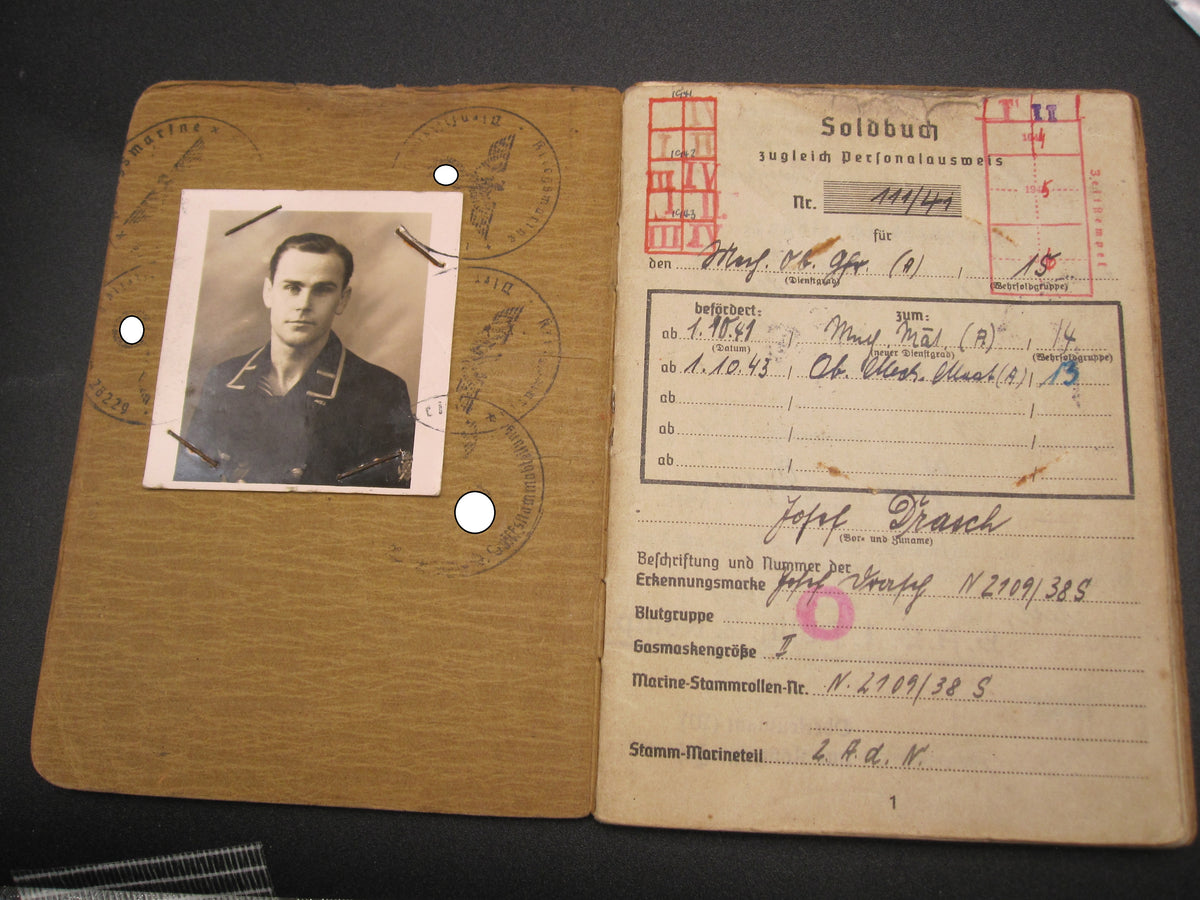 Kriegsmarine
Kriegsmarine
Dienst
28229
Soldbuch
zugleich Personalausweis
Nr. 111/41
für
den Mech. Ob. Gfr (A), 15
(Dienstgrad) (Wehrsoldgruppe)
1941
IV
1942
III IV
1943
III IV
T II
194 4
194 5
6
Zeitstempel
befördert: zum:
ab 1.10.41 / Mech. Mat. (A), 14
(Datum) (neuer Dienstgrad) (Wehrsoldgruppe)
ab 1.10.43 / Ob. Mech. Maat (A), 13
ab / /
ab / /
ab / /
Josef Drasch
(Vor- und Zuname)
Beschriftung und Nummer der
Erkennungsmarke Josef Drasch N 2109/38 S
Blutgruppe O
Gasmaskengröße II
Marine-Stammrollen-Nr. N. 2109/38 S
Stamm-Marineteil 2. A. d. N.
1